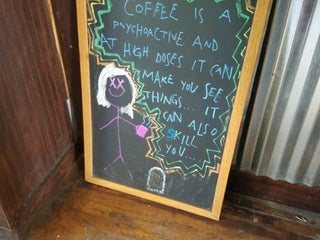 COFFEE IS A
PSYCHOACTIVE AND
AT HIGH DOSES IT CAN
MAKE YOU SEE
THINGS... IT
CAN ALSO
SKILL
YOU...